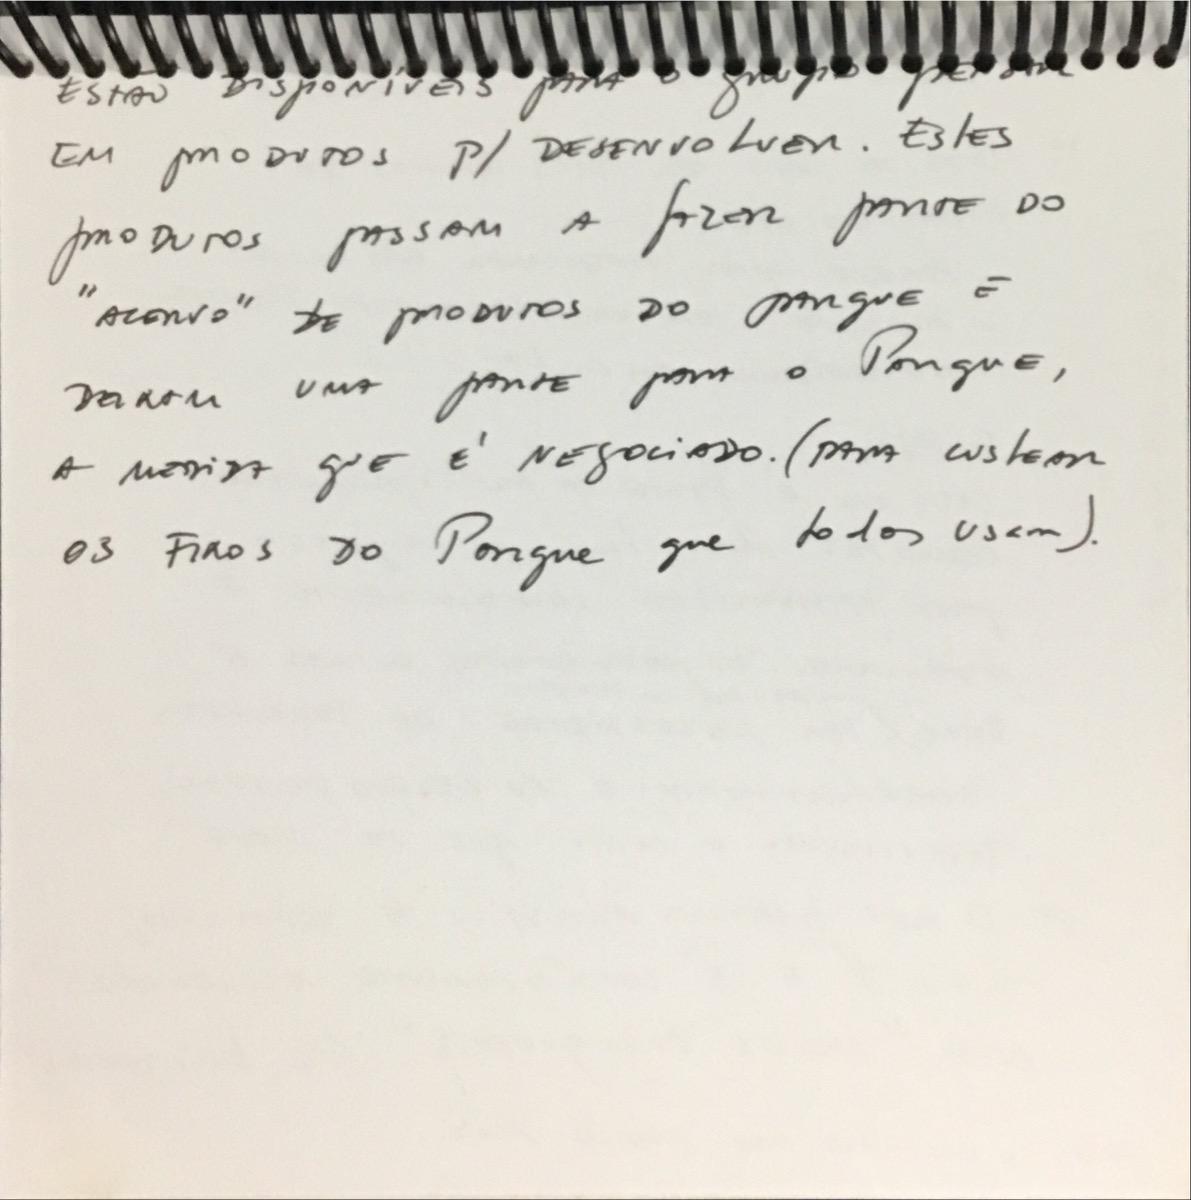 ESTÃO DISPONÍVEIS PARA O GRUPO PENSAR
EM PRODUTOS P/ DESENVOLVER. ESTES
PRODUTOS PASSAM A FAZER PARTE DO
"ACERVO" DE PRODUTOS DO PARQUE E
DEIXAM UMA PARTE PARA O PARQUE,
A MEDIDA QUE É NEGOCIADO. (PARA CUSTEAR
OS FIXOS DO Parque que todos usam).